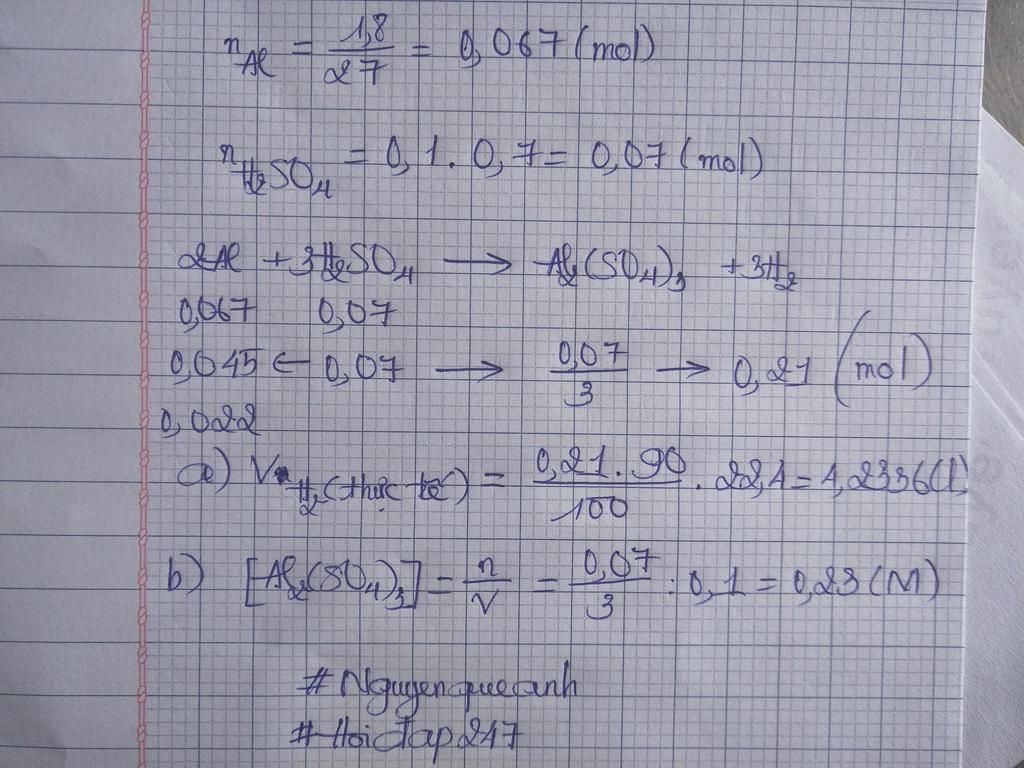 nAl = 1,8/27 = 0,067 (mol)
nH2SO4 = 0,1 . 0,7 = 0,07 (mol)
2Al + 3H2SO4 → Al2(SO4)3 + 3H2
0,067 0,07
0,045 ← 0,07 → 0,07/3 → 0,21 (mol)
0,022
a) V H2 (thực tế) = 0,21 . 90/100 . 22,4 = 4,2336 (l)
b) [Al2(SO4)3] = n/V = 0,07/3 : 0,1 = 0,23 (M)
# Nguyenqueanh
# Hoidap247